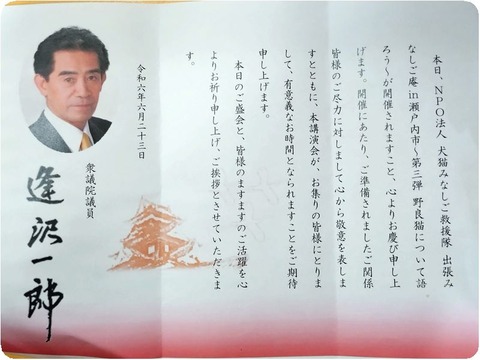 本日、NPO法人 犬猫みなしご救援隊 出張み
なしご庵 in 瀬戸内市～第三弾 野良猫について語
ろう～が開催されますこと、心よりお慶び申し上
げます。開催にあたり、ご準備されましたご関係
皆様のご尽力に対しまして心から敬意を表しま
すとともに、本講演会が、お集りの皆様にとりま
して、有意義なお時間となられますことをご期待
申し上げます。
本日のご盛会と、皆様のますますのご活躍を心
よりお祈り申し上げ、ご挨拶とさせていただきま
す。
令和六年六月二十三日
衆議院議員
逢沢一郎